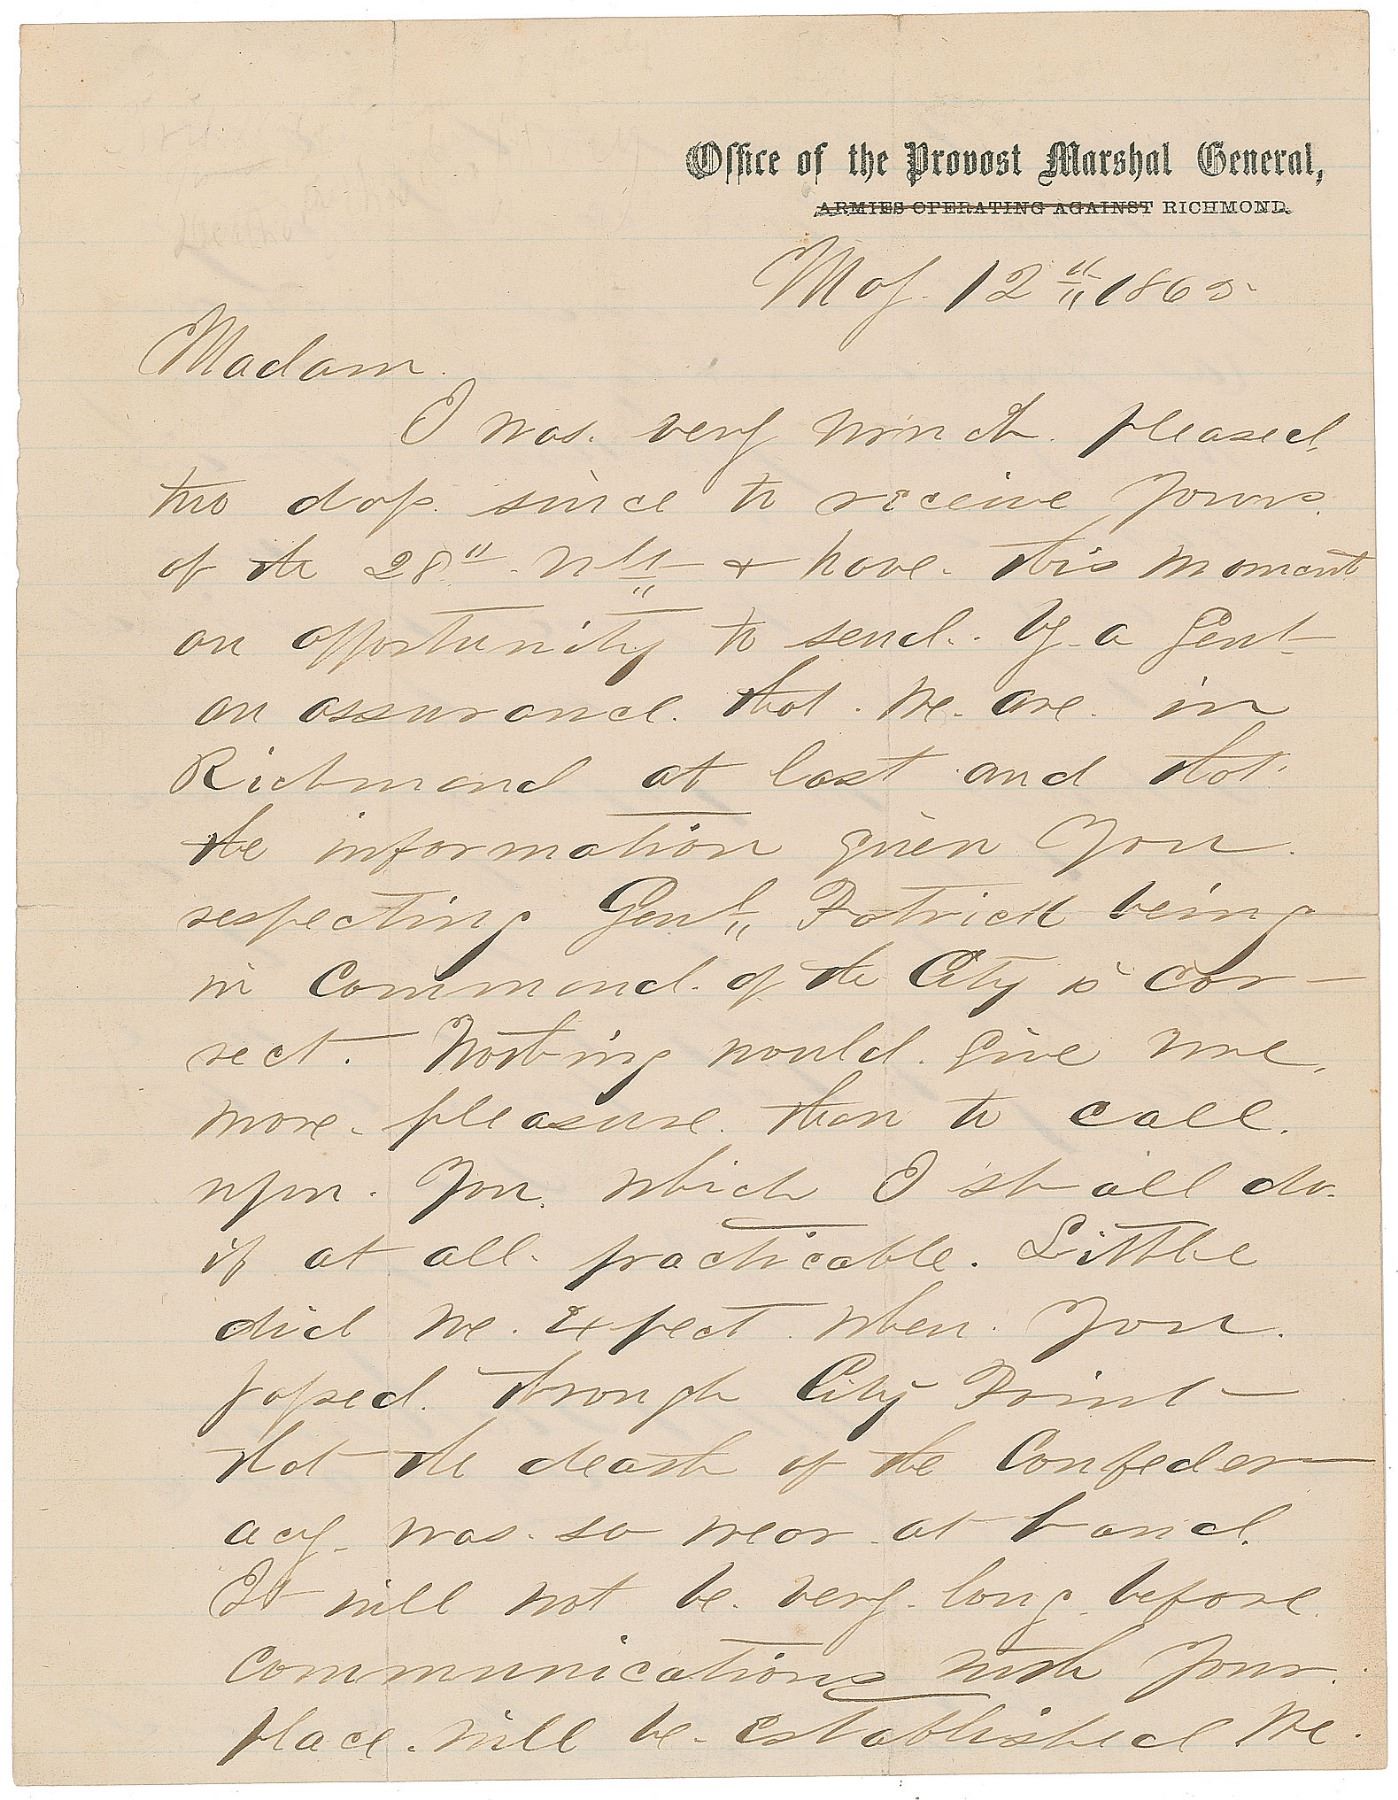 Office of the Provost Marshal General,
ARMIES OPERATING AGAINST RICHMOND.
May 12th 1865
Madam.
I was. very much. pleased.
two days. since to receive yours.
of the 28th. ult & have. this moment
an opportunity to send. by a Gent
an assurance. that. we. are. in
Richmond at last and that.
the information given you.
respecting Genl. Patrick being
in Command. of the City is cor-
rect. Nothing would. give me.
more. pleasure. than to call.
upon. you. which I shall do.
if at all. practicable. Little
did we. expect. when. you.
passed. through City Point
that the death of the Confeder-
acy. was. so near at hand.
It will not be. very. long. before.
communications with your.
place. will be. established We.